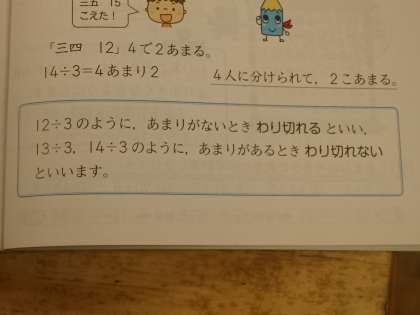 三五 15
こえた!
「三四 12」4で2あまる。
14÷3=4あまり2
4人に分けられて，2こあまる。
12÷3のように，あまりがないとき わり切れる といい，
13÷3，14÷3のように，あまりがあるとき わり切れない
といいます。